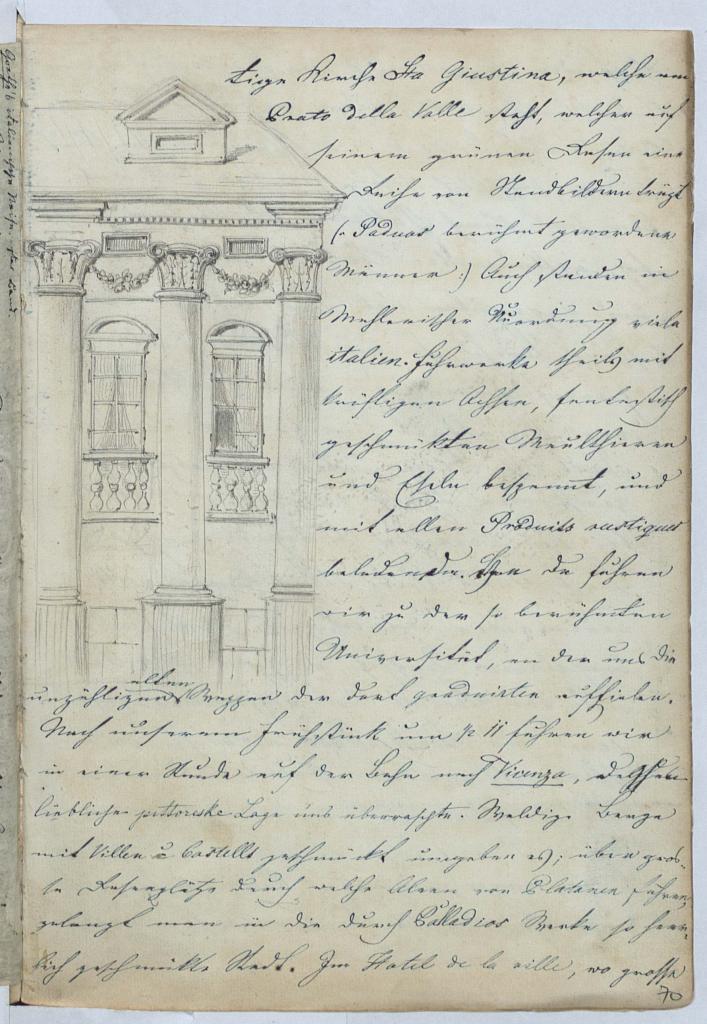 tige Kirche Sta Giustina, welche am
Prato della Valle steht, welcher auf
seinem grünen Rasen eine
Reihe von Standbildern trägt
(: Paduas berühmt gewordene
Männer :) Auch standen in
Mahlerischer Anordnung viele
italien. Fuhrwerke theils mit
kräftigen Ochsen, fantastisch
geschmükten Maulthieren
und Eseln bespannt, und
mit allen Produits rustiques
beladen da. Von da fuhren
wir zu der so berühmten
Universität, an der uns die
unzähligen alten Wappen der dort graduirten auffielen.
Nach unserem Frühstück um ½ 11 fuhren wir
in einer Stunde auf der Bahn nach Vicenza, deßhen
liebliche pittoreske Lage uns überraschte. Waldige Berge
mit Villen u Castells geschmückt umgeben es; über gros-
se Rasenplätze durch welche Aleen von Platanen führen,
gelangt man in die durch Palladios Werke so herr-
lich geschmükte Stadt. Im Hotel de la ville, wo grosse
70
Goethe's italienische Reise.